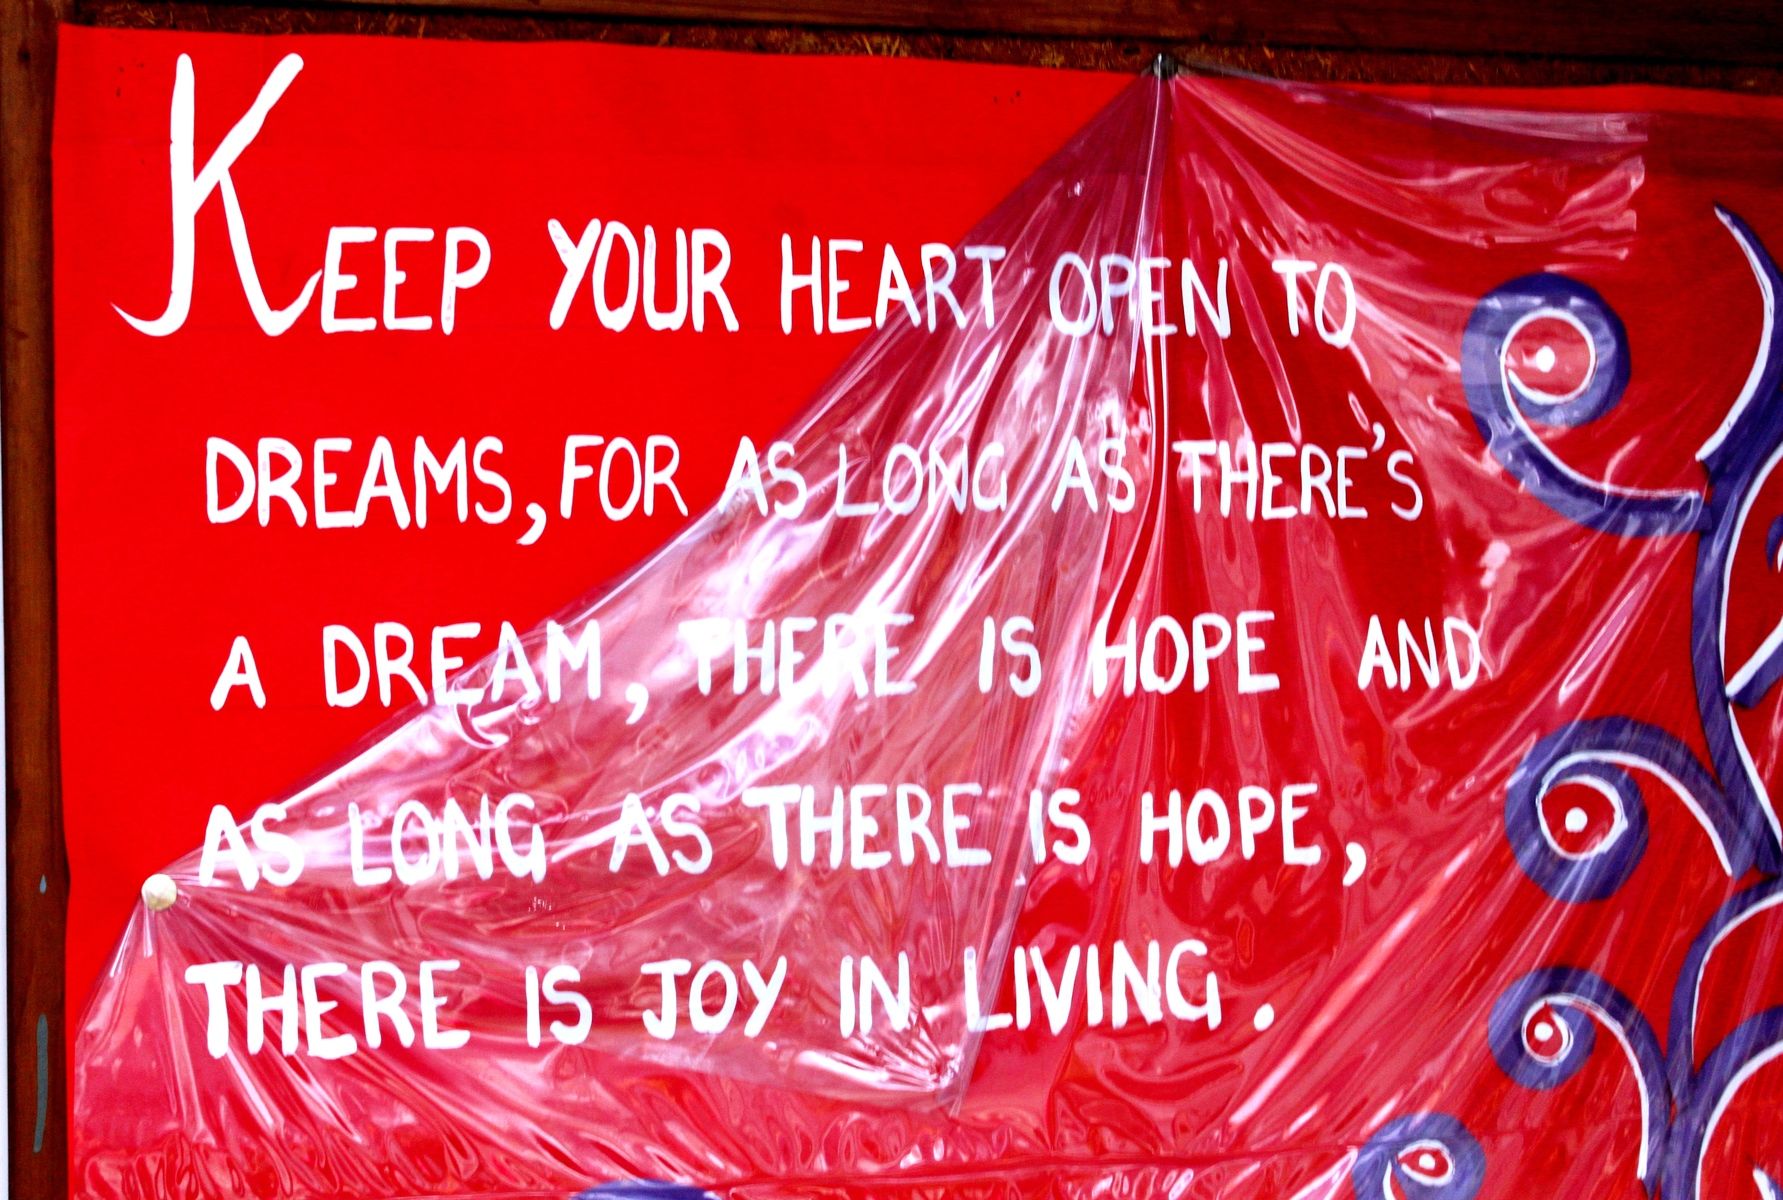 KEEP YOUR HEART OPEN TO
DREAMS, FOR AS LONG AS THERE'S
A DREAM, THERE IS HOPE AND
AS LONG AS THERE IS HOPE,
THERE IS JOY IN LIVING.